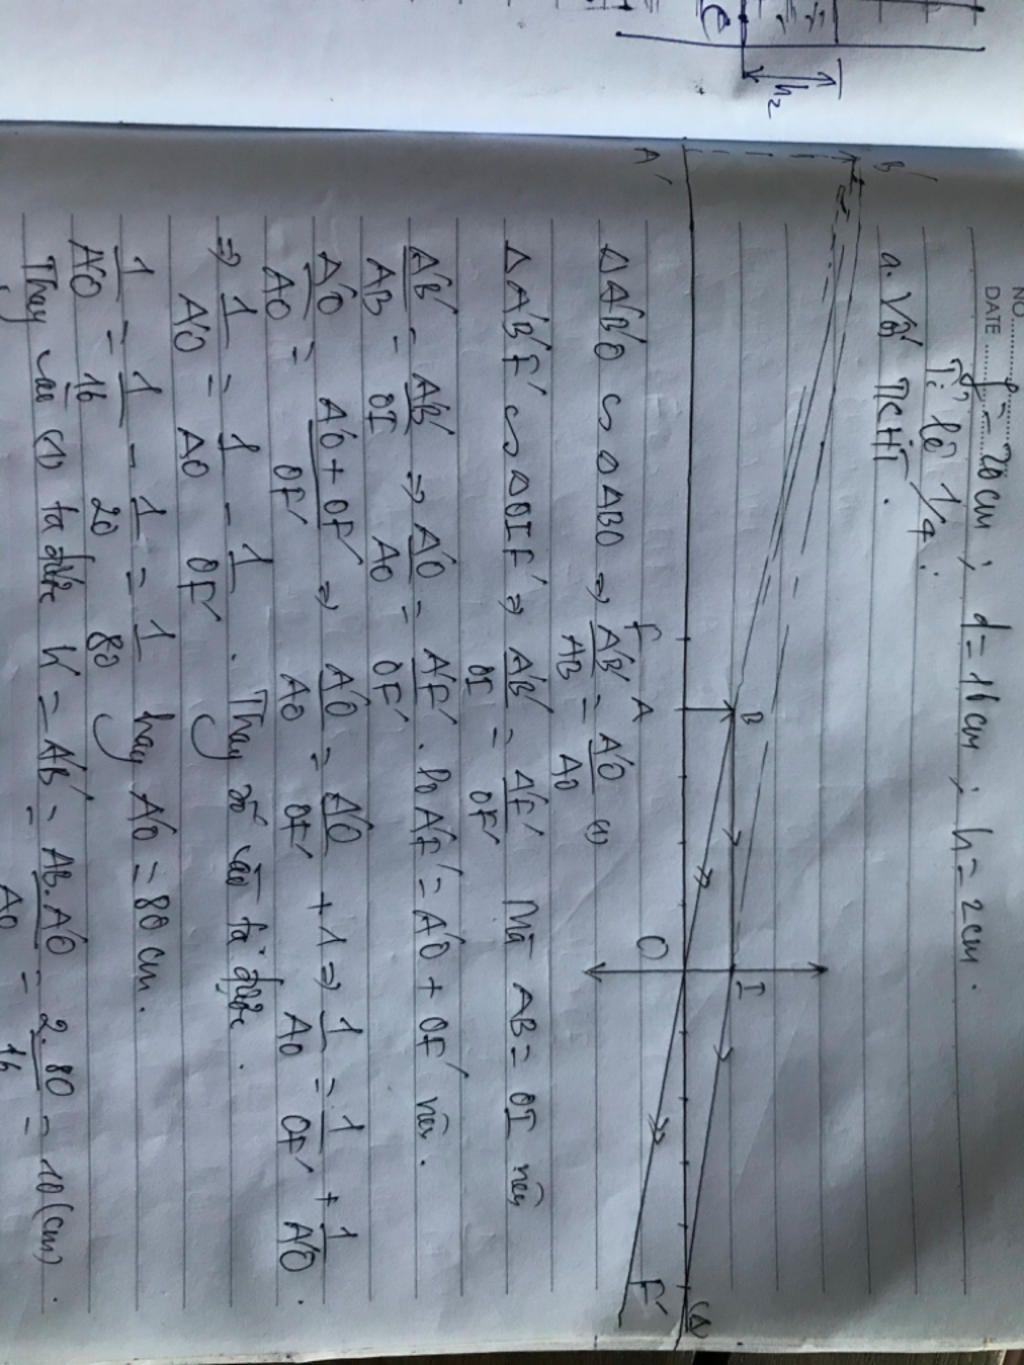 NO
DATE
f = 20cm ; d = 16cm ; h = 2cm.
Tỉ lệ 1/4.
a. Với TKHT.
B'
A'
F
A
B
O
I
F'
Δ
ΔA'B'O ∽ ΔABO ⇒ A'B'/AB = A'O/AO (1)
ΔA'B'F' ∽ ΔOIF' ⇒ A'B'/OI = A'F'/OF' Mà AB = OI nên
A'B'/AB = A'B'/OI ⇒ A'O/AO = A'F'/OF'. Do A'F' = A'O + OF' nên.
A'O/AO = A'O + OF'/OF' ⇒ A'O/AO = A'O/OF' + 1 ⇒ 1/AO = 1/OF' + 1/A'O.
⇒ 1/A'O = 1/AO - 1/OF'. Thay số vào ta được.
1/A'O = 1/16 - 1/20 = 1/80 hay A'O = 80 cm.
Thay vào (1) ta được h' = A'B' = AB.A'O/AO = 2.80/16 = 10 (cm).
h₂